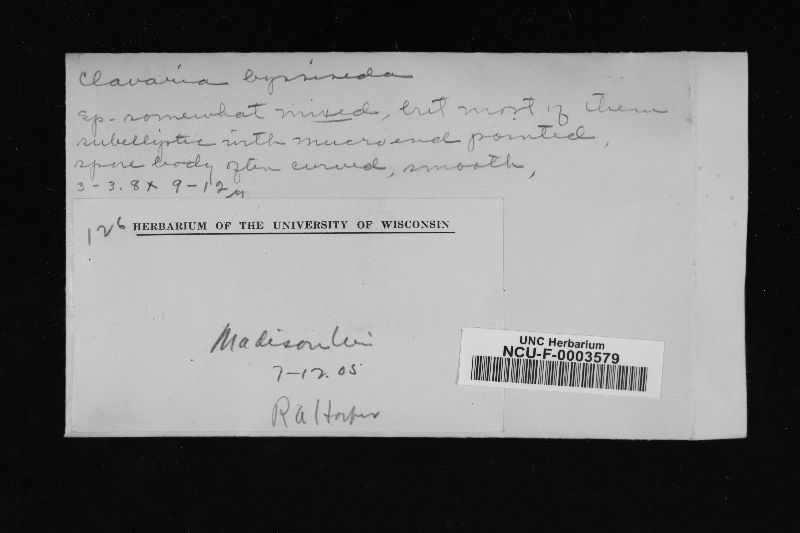 Clavaria byssiseda
Sp. somewhat mixed, but most of them
subelliptic with mucro end pointed,
spore body often curved, smooth,
3-3.8 x 9-12 µ
126 HERBARIUM OF THE UNIVERSITY OF WISCONSIN
Madison Wis
7-12.05
R A Harper
UNC Herbarium
NCU-F-0003579